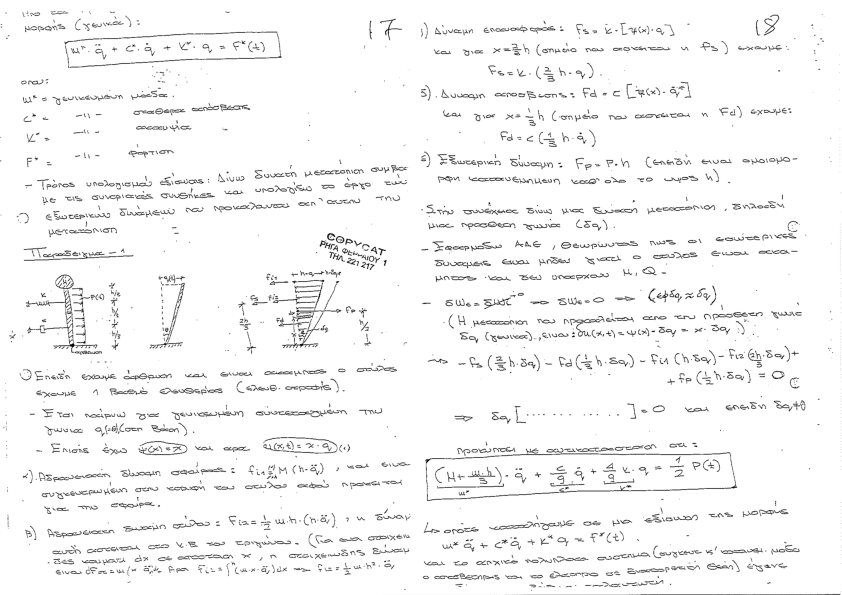 μορφής (γενικά):
17
m*·q̈ + c*·q̇ + K*·q = F*(t)
όπου:
m* = γενικευμένη μάζα.
c* = -11- σταθερά απόσβεσης
K* = -11- ακαμψία
F* = -11- φόρτιση
- Τρόπος υπολογισμού εξίσωσης: Δίνω δυνατή μετατόπιση συμβατή
με τις συνοριακές συνθήκες και υπολογίζω το έργο των
εξωτερικών δυνάμεων που προκαλούνται απ' αυτήν την
μετατόπιση
COPYCAT
ΡΗΓΑ ΦΕΡΑΙΟΥ 1
ΤΗΛ. 221 217
Παράδειγμα - 1
Επειδή έχουμε άρθρωση και είναι άκαμπτος ο στύλος
έχουμε 1 βαθμό ελευθερίας (ελευθ. στροφής).
- Έτσι παίρνω για γενικευμένη συντεταγμένη την
γωνία q(=θ)(στη βάση).
- Επίσης έχω ψ(x)=x και άρα u(x,t)=x·q (1)
α). Αδρανειακή δύναμη σφαίρας: fi1= M(h·q̈), και είναι
συγκεντρωμένη στην κορυφή του στύλου αφού πρόκειται
για την σφαίρα.
β) Αδρανειακή δύναμη στύλου: Fi2=½ m·h·(h·q̈), η δύναμη
αυτή ασκείται στο Κ.Β του τριγώνου. (Για ένα στοιχειώ-
δες κομμάτι dx σε απόσταση x, η στοιχειώδης δύναμη
18
Δύναμη επαναφοράς: Fs = k·[ψ(x)·q]
και για x=⅔h (σημείο που ασκείται η fs) έχουμε:
Fs = k·(⅔ h·q).
5). Δύναμη απόσβεσης: Fd = c[ψ(x)·q̇]
και για x=⅓h (σημείο που ασκείται η Fd) έχουμε:
Fd = c(⅓ h·q̇)
Εξωτερική δύναμη: Fp = P·h (επειδή είναι ομοιόμο-
ρφη κατανεμημένη καθ' όλο το ύψος h).
-Στην συνέχεια δίνω μια δυνατή μετατόπιση, δηλαδή
μιας πρόσθετη γωνία (δq).
- Εφαρμόζω ΑΔΕ, θεωρώντας πως οι εσωτερικές
δυνάμεις είναι μηδέν γιατί ο στύλος είναι άκα-
μπτος και δεν υπάρχουν M, Q.
(Η μετατόπιση που προκαλείται από την πρόσθετη γωνία
δq (γενικά), είναι: δu(x,t) = ψ(x)·δq = x·δq).
⇒ -fs(⅔h·δq) - fd(⅓h·δq) - fi1(h·δq) - fi2(⅔h·δq)+
+ fp(½h·δq) = 0
⇒ δq[............]=0 και επειδή δq≠0
προκύπτει με αντικατάσταση ότι:
(M + m·h/3)·q̈ + c/9 q̇ + 4/9 k·q = 1/2 P(t)
m* c* k*
οπότε καταλήγουμε σε μια εξίσωση της μορφής
m* q̈ + c* q̇ + K* q = F*(t).